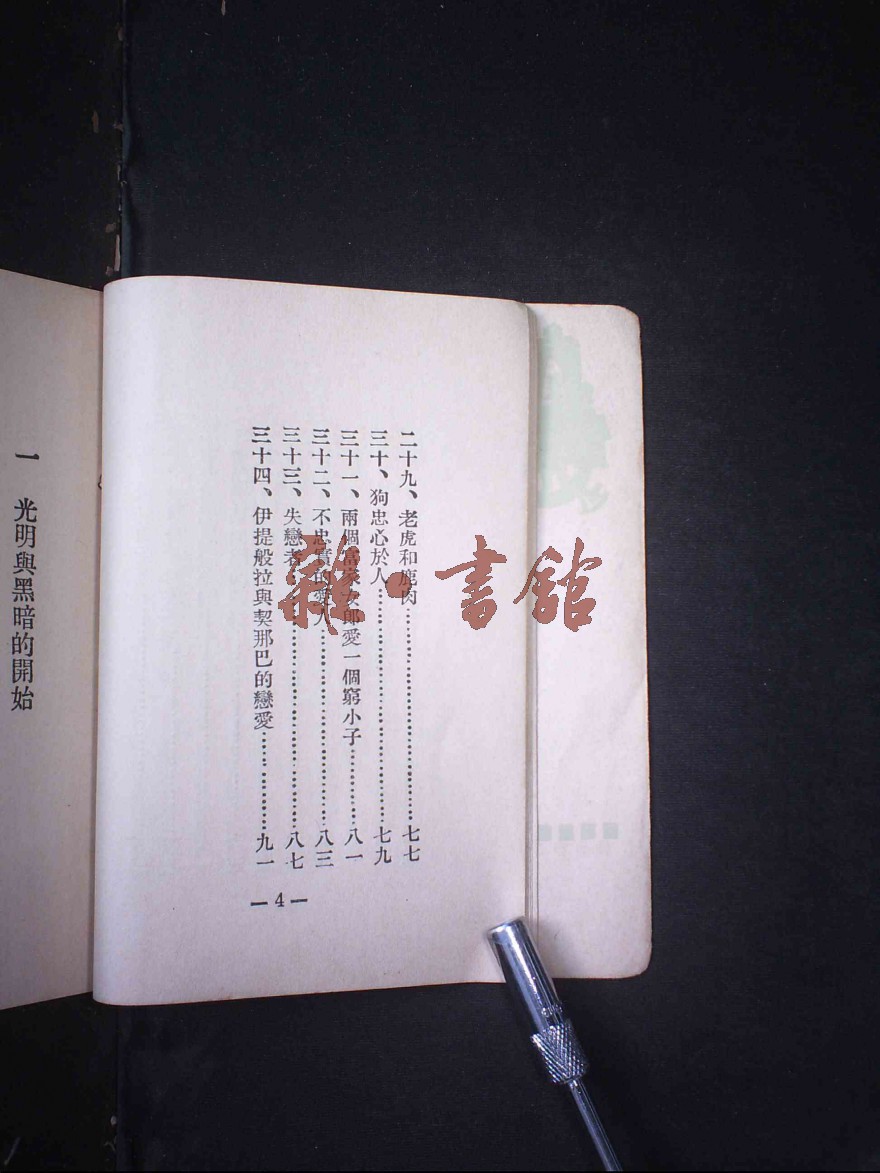 二十九、老虎和鹿肉…………七七
三十、狗忠心於人…………七九
三十一、兩個富家女郎愛一個窮小子…………八一
三十二、不忠實的愛人…………八三
三十三、失戀者…………八七
三十四、伊提般拉與契那巴的戀愛…………九一
—4—
一 光明與黑暗的開始
雜·書館